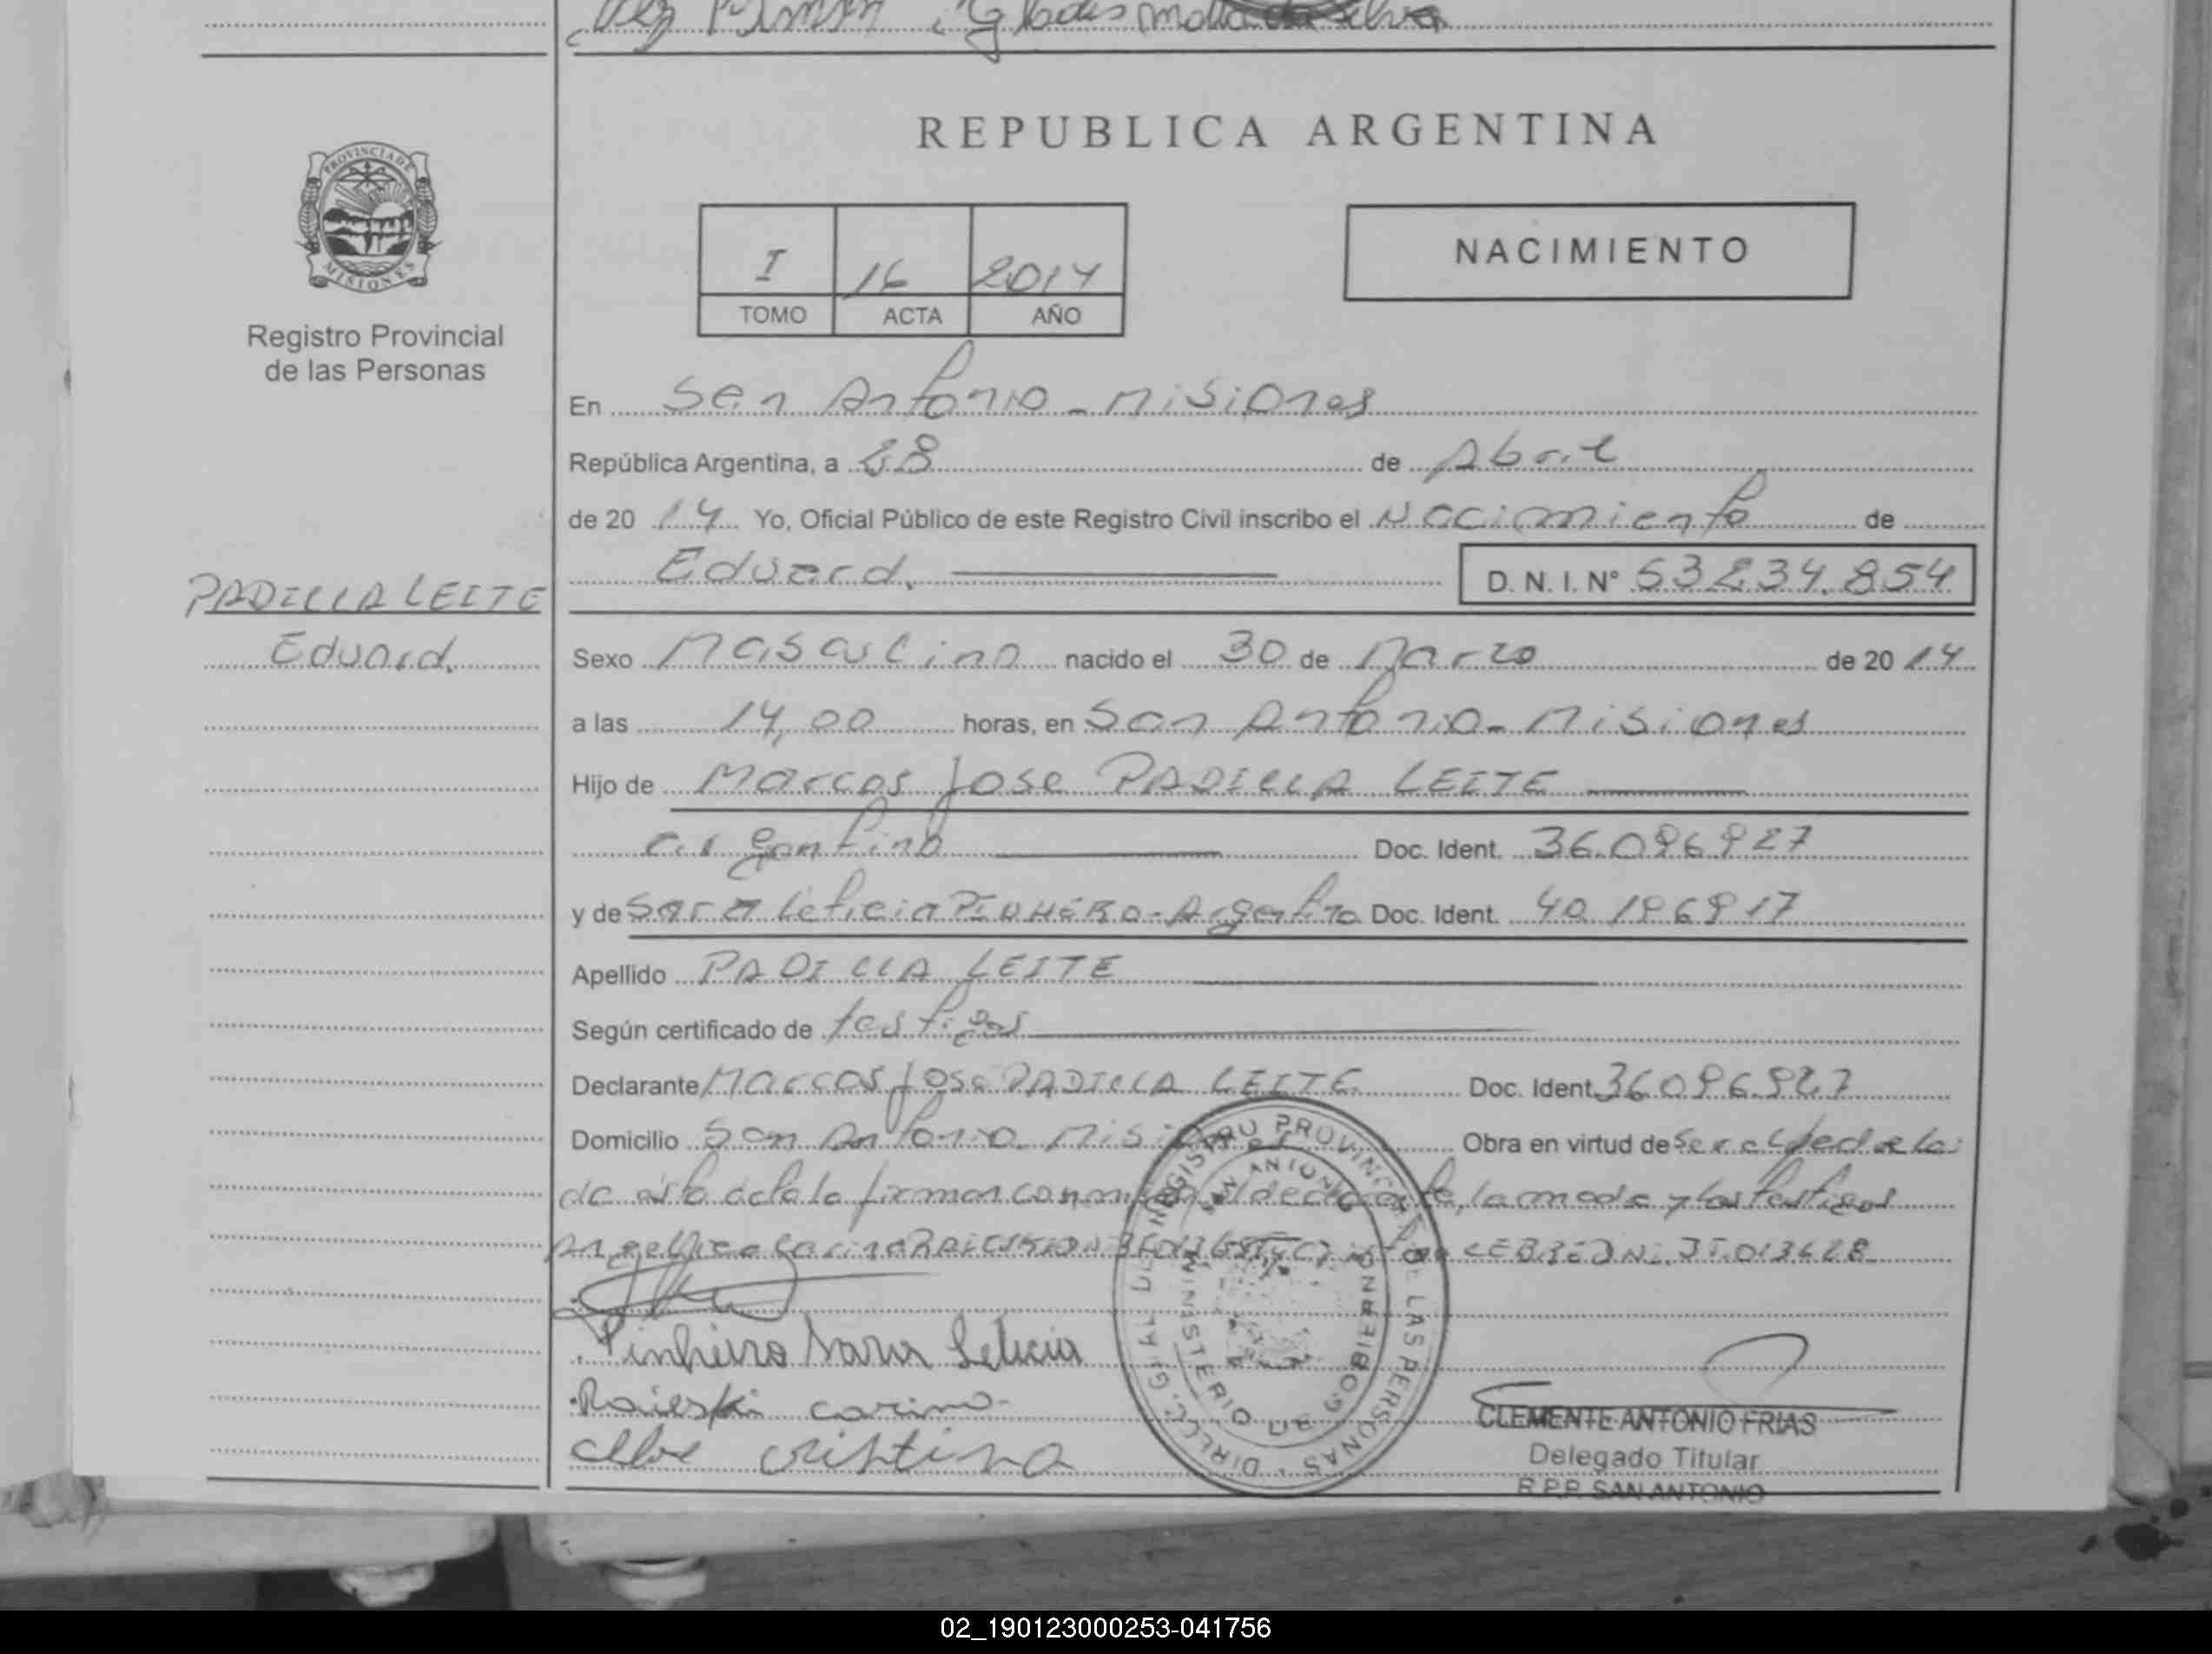 Gladis
REPUBLICA ARGENTINA
PROVINCIA DE
MISIONES
Registro Provincial
de las Personas
I 16 2014
TOMO ACTA AÑO
NACIMIENTO
En San Antonio - Misiones
República Argentina, a 28 de Abril
de 20 14 Yo, Oficial Público de este Registro Civil inscribo el Nacimiento de
Eduard. D. N. I. Nº 53.234.854
PADILLA LEITE
Eduard.
Sexo Masculino nacido el 30 de Marzo de 20 14
a las 14,00 horas, en San Antonio - Misiones
Hijo de Marcos Jose PADILLA LEITE
argentino Doc. Ident. 36.096.927
y de Sara Leticia PINHEIRO - Argentina Doc. Ident. 40.196.917
Apellido PADILLA LEITE
Según certificado de testigos
Declarante Marcos Jose PADILLA LEITE Doc. Ident. 36.096.927
Domicilio San Antonio Misiones Obra en virtud de
de esta acta la firman conmigo el declarante, la madre y los testigos
Pinheiro Sara Leticia
Raieski carina
cristina
DIRECC. GRAL. DEL REGISTRO PROVINCIAL DE LAS PERSONAS
SAN ANTONIO
MINISTERIO DE GOBIERNO
CLEMENTE ANTONIO FRIAS
Delegado Titular
R.P.P. SAN ANTONIO
02_190123000253-041756